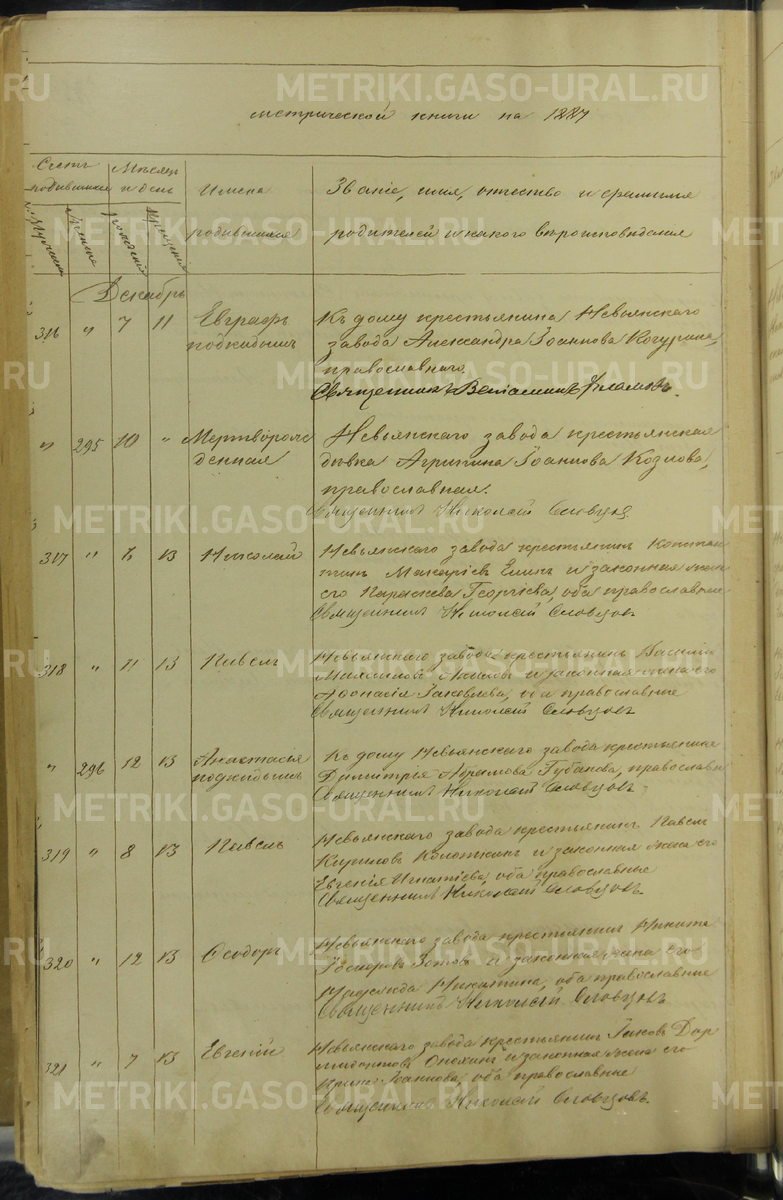 метрической книги на 1887
Счетъ родившихся
Мѣсяцъ и день
Имена родившихся
Званіе, имя, отчество и фамилія
родителей и какого вѣроисповѣданія
Мужеска
Женска
рожденія
крещенія
Декабрь
316 " 7 11 Евграфъ подкидышъ
Къ дому крестьянина Невьянскаго
завода Александра Іоаннова
православнаго.
Священникъ Веніаминъ
" 295 10 " Мертворожденная
Невьянскаго завода крестьянская
дѣвка Агрипина Іоаннова Козлова,
православная.
Священникъ Николай Словцов
317 " 6 13 Николай
Невьянскаго завода крестьянинъ Константинъ
Макаріевъ и законная жена
его Параскева Георгіева, оба православные
Священникъ Николай Словцовъ
318 " 11 13 Павелъ
Невьянскаго завода крестьянинъ Василій
и законная жена его
Афанасія Іаковлева, оба православные
Священникъ Николай Словцовъ
" 296 12 13 Анастасія подкидышъ
Къ дому Невьянскаго завода крестьянина
Димитрія Абрамова Губанова, православн
Священникъ Николай Словцовъ
319 " 8 13 Павелъ
Невьянскаго завода крестьянинъ Павелъ
Кириловъ и законная жена его
Евгенія Игнатіева, оба православные
Священникъ Николай Словцовъ
320 " 12 13 Ѳеодоръ
Невьянскаго завода крестьянинъ Никита
Зотовъ и законная жена его
Надежда Никитина, оба православные
Священникъ Николай Словцовъ
321 " 7 13 Евгеній
Невьянскаго завода крестьянинъ Іаковъ
и законная жена его
Ирина Іоаннова, оба православные
Священникъ Николай Словцовъ
METRIKI.GASO-URAL.RU